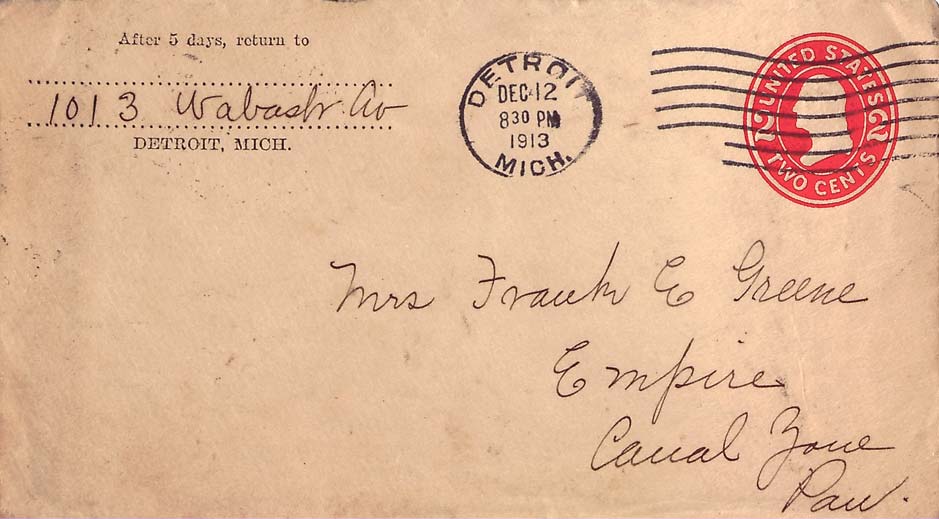 After 5 days, return to
1013 Wabash Av
DETROIT, MICH.
DETROIT
DEC 12
8 30 PM
1913
MICH.
UNITED STATES
2 2
TWO CENTS
Mrs Frank E Greene
Empire
Canal Zone
Pan.